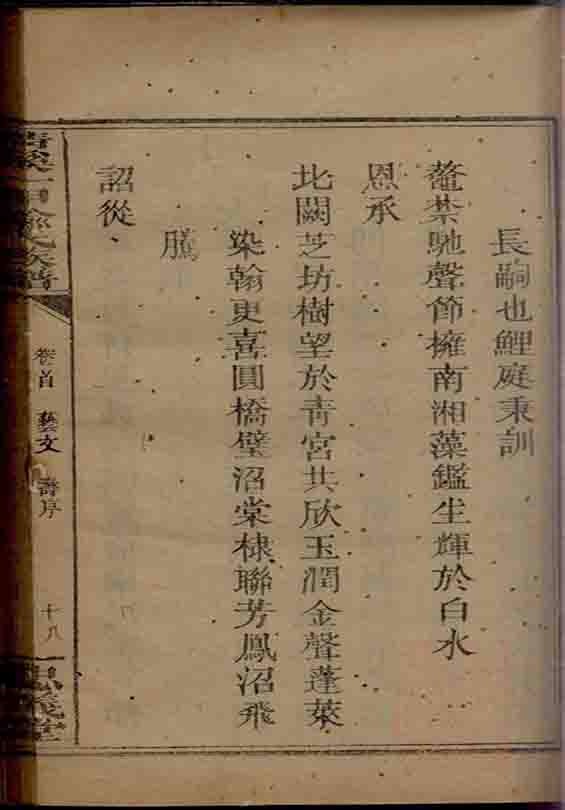 長嗣也鯉庭秉訓
鼇禁馳聲節擁南湘藻鑑生輝於白水
恩承
北闕芝坊樹望於青宮共欣玉潤金聲蓬萊
染翰更喜圓橋璧沼棠棣聯芳鳳沼飛
騰
詔從
氏族譜
卷首 藝文 壽序 十八
義堂